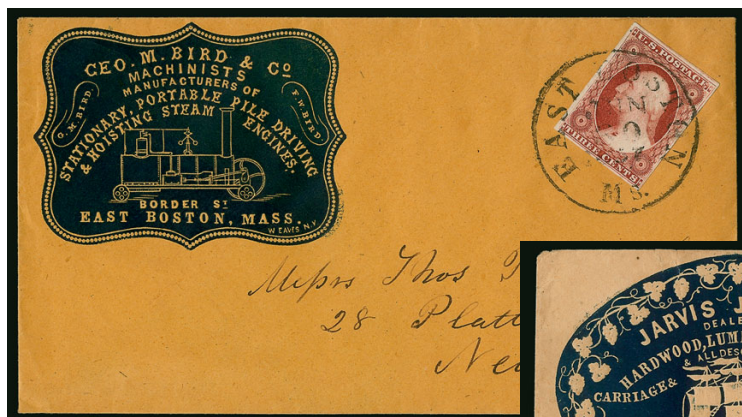 GEO. M. BIRD & Co
MACHINISTS
MANUFACTURERS OF
STATIONARY, PORTABLE PILE DRIVING
& HOISTING STEAM ENGINES.
G. M. BIRD.
F. W. BIRD
BORDER ST
EAST BOSTON, MASS.
WEAVES N.Y.
U.S. POSTAGE
THREE CENTS
EAST BOSTON
Ms.
Messrs Thos
28 Platt
JARVIS
DEALE
HARDWOOD, LUM
& ALL DES
CARRIAGE &